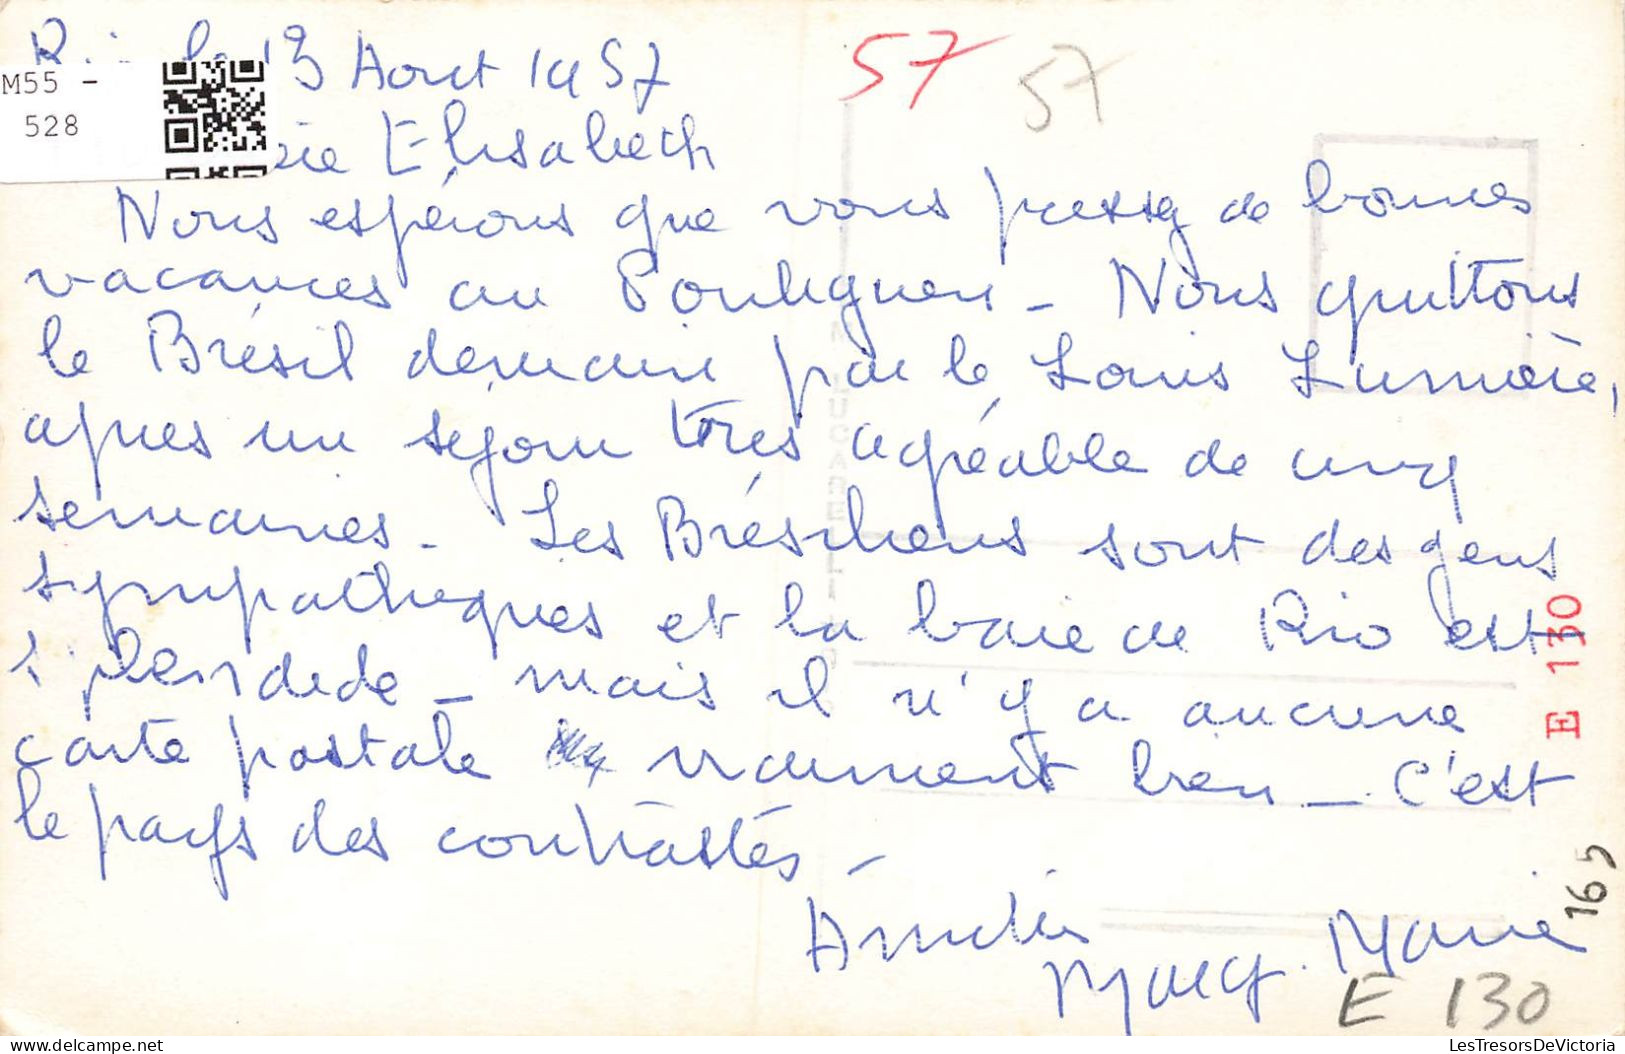 13 Aout 1957
57
57
M55 -
528
Elisabeth
Nous espérons que vous passez de bonnes
vacances au Pouliguen - Nous quittons
le Brésil demain par le Louis Lumière,
après un séjour très agréable de cinq
semaines - Les Brésiliens sont des gens
sympathiques et la baie de Rio est
splendide - mais il n'y a aucune
carte postale vraiment bien - C'est
le pays des contrastes -
Amitiés
Marie
E 130
165
E 130
LesTresorsDeVictoria